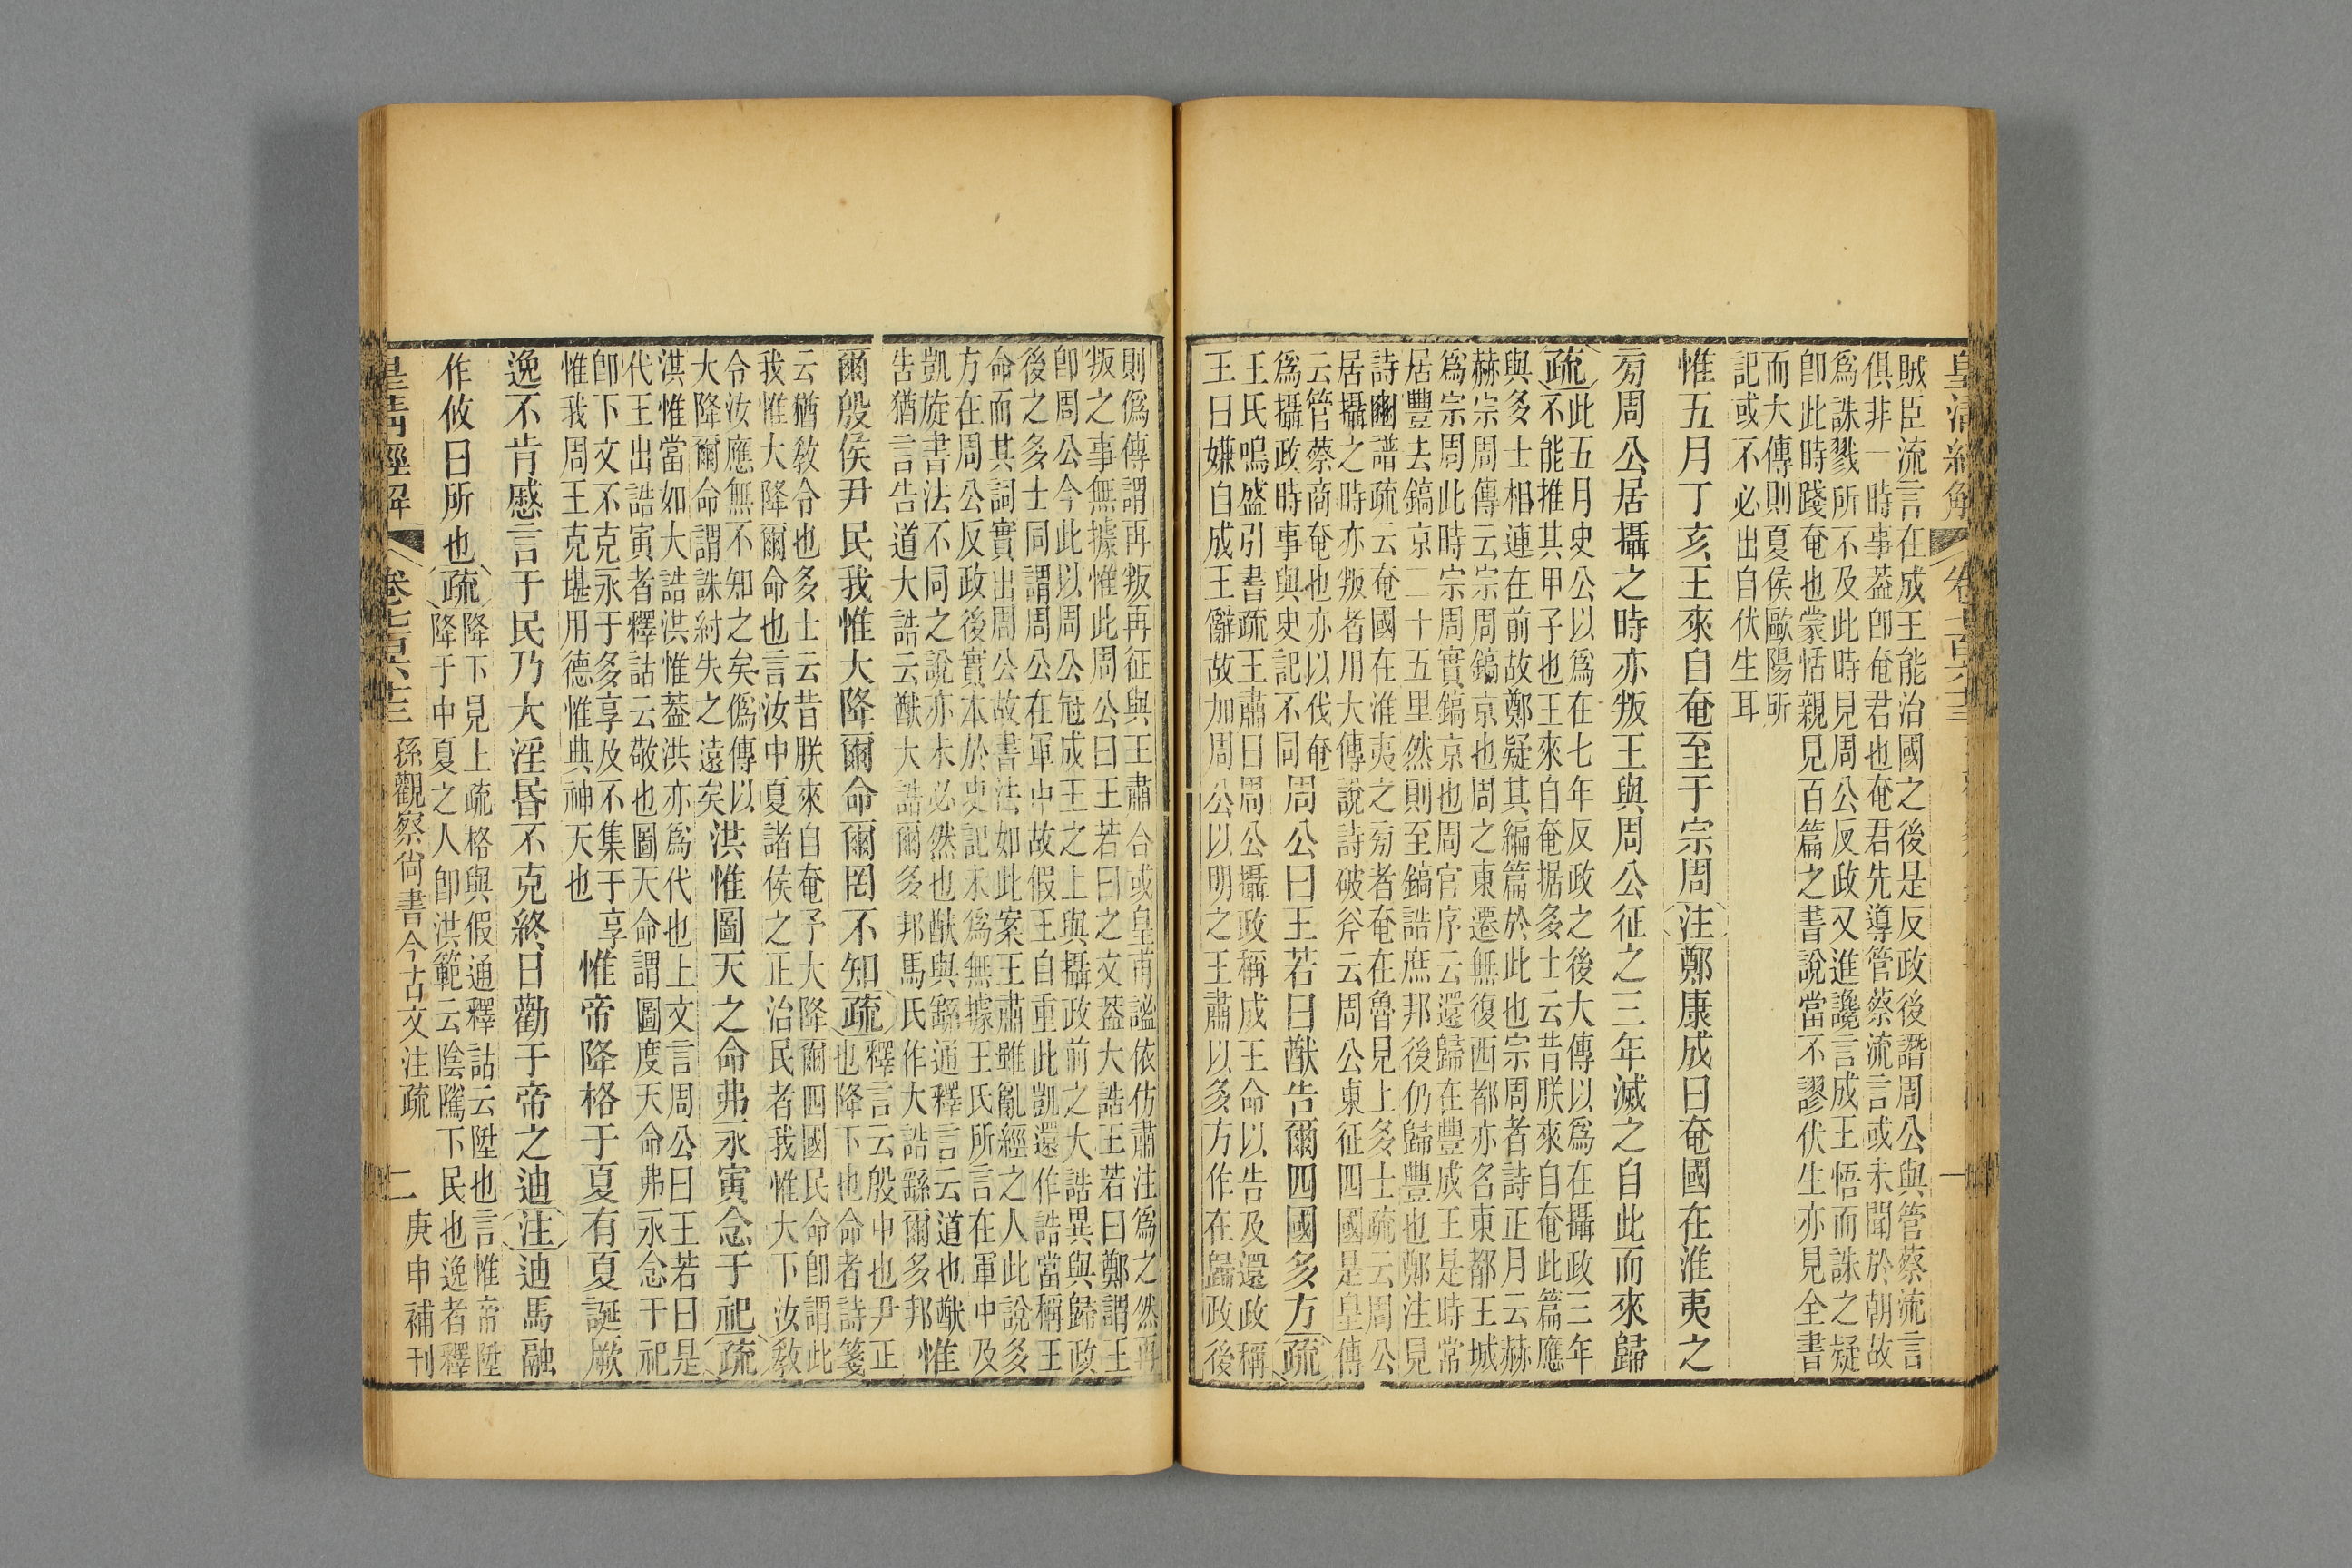 皇清經解 卷七百六十三 一
賊臣流言在成王能治國之後是反政後譖周公與管蔡流言
俱非一時事葢卽奄君也奄君先導管蔡流言或未聞於朝故
爲誅戮所不及此時見周公反政又進讒言成王悟而誅之疑
卽此時踐奄也蒙恬親見百篇之書說當不謬伏生亦見全書
而大傳則夏侯歐陽所
記或不必出自伏生耳
惟五月丁亥王來自奄至于宗周注鄭康成曰奄國在淮夷之
旁周公居攝之時亦叛王與周公征之三年滅之自此而來歸
疏此五月史公以爲在七年反政之後大傳以爲在攝政三年
不能推其甲子也王來自奄据多士云昔朕來自奄此篇應
與多士相連在前故鄭疑其編篇於此也宗周者詩正月云赫
赫宗周傳云宗周鎬京也周之東遷無復西都亦名東都王城
爲宗周此時宗周實鎬京也周官序云還歸在豐成王是時常
居豐去鎬京二十五里然則至鎬誥庶邦後仍歸豐也鄭注見
詩豳譜疏云奄國在淮夷之旁者奄在魯見上多士疏云周公
居攝之時亦叛者用大傳說詩破斧云周公東征四國是皇傳
云管蔡商奄也亦以伐奄
爲攝政時事與史記不同
周公曰王若曰猷告爾四國多方疏
王氏鳴盛引書疏王肅曰周公攝政稱成王命以告及還政稱
王曰嫌自成王辭故加周公以明之王肅以多方作在歸政後
則僞傳謂再叛再征與王肅合或皇甫謐依仿肅注爲之然再
叛之事無據惟此周公曰王若曰之文葢大誥王若曰鄭謂王
卽周公今此以周公冠成王之上與攝政前之大誥異與歸政
後之多士同謂周公在軍中故假王自重此凱還作誥當稱王
命而其詞實出周公故書法如此案王肅雖亂經之人此說多
方在周公反政後實本於史記未爲無據王氏所言在軍中及
凱旋書法不同之說亦未必然也猷與繇通釋言云道也猷
告猶言告道大誥云猷大誥爾多邦馬氏作大誥繇爾多邦
惟
爾殷侯尹民我惟大降爾命爾罔不知疏
釋言云殷中也尹正
也降下也命者詩箋
云猶教令也多士云昔朕來自奄予大降爾四國民命卽謂此
我惟大降爾命也言汝中夏諸侯之正治民者我惟大下汝教
令汝應無不知之矣僞傳以
大降爾命謂誅紂失之遠矣
洪惟圖天之命弗永寅念于祀疏
洪惟當如大誥洪惟葢洪亦爲代也上文言周公曰王若曰是
代王出誥寅者釋詁云敬也圖天命謂圖度天命弗永念于祀
卽下文不克永于多享及不集于享
惟我周王克堪用德惟典神天也
惟帝降格于夏有夏誕厥
逸不肯慼言于民乃大淫昏不克終日勸于帝之迪注迪馬融
作攸曰所也疏
降下見上疏格與假通釋詁云陞也言惟帝陞
降于中夏之人卽洪範云陰騭下民也逸者釋
皇清經解 卷七百六十三 孫觀察尙書今古文注疏 二 庚申補刊